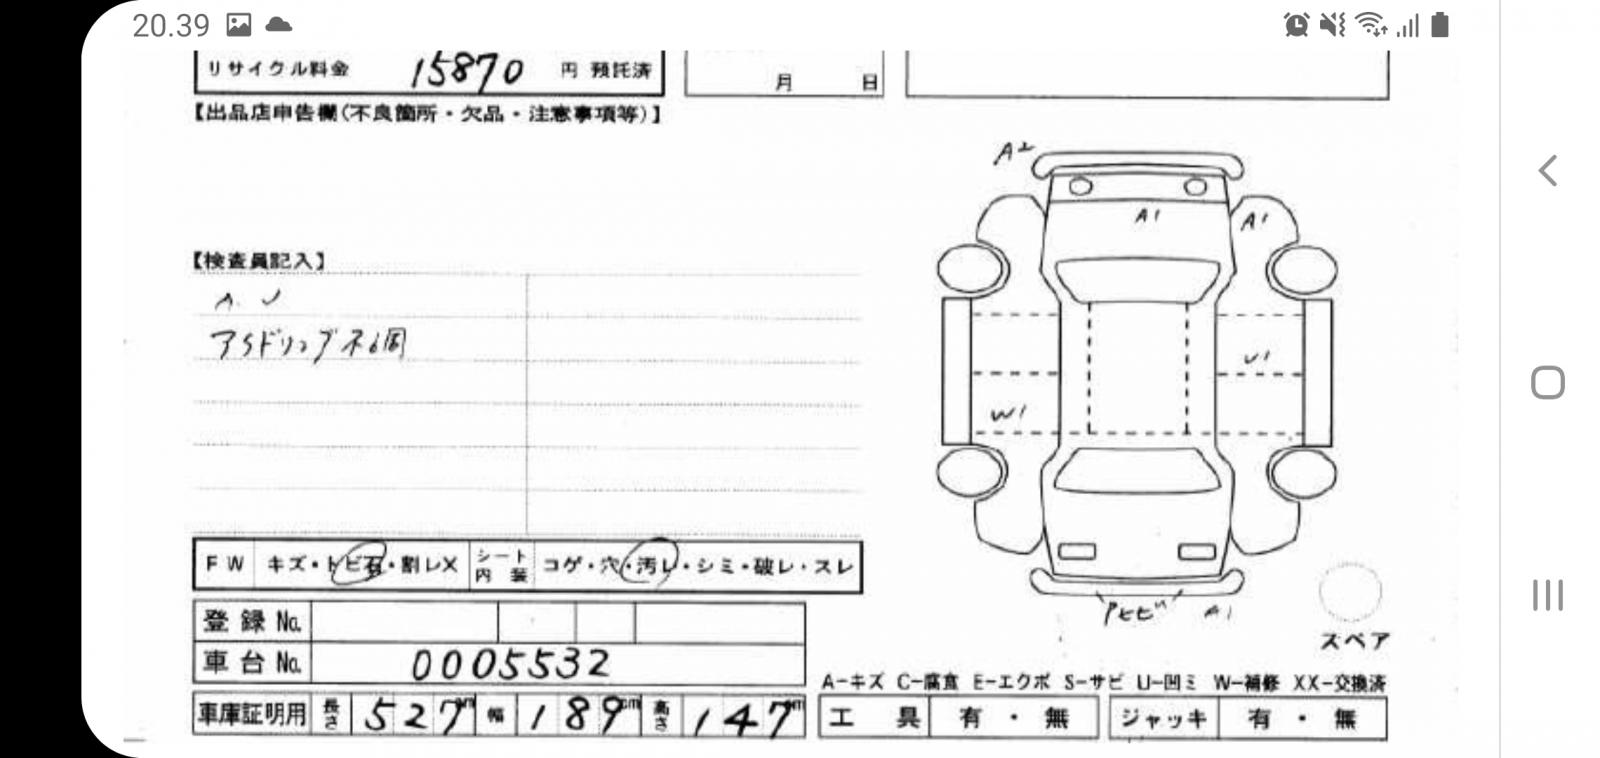 20.39
リサイクル料金 15870 円 預託済
月 日
【出品店申告欄(不良箇所・欠品・注意事項等)】
A2
A1 A1
【検査員記入】
A. U
U1
W1
FW キズ・トビ石・割レX シート内装 コゲ・穴・汚レ・シミ・破レ・スレ
登録No.
A1
スペア
車台No. 0005532
A-キズ C-腐食 E-エクボ S-サビ U-凹ミ W-補修 XX-交換済
車庫証明用 長さ 527cm 幅 189cm 高さ 147cm
工具 有・無 ジャッキ 有・無